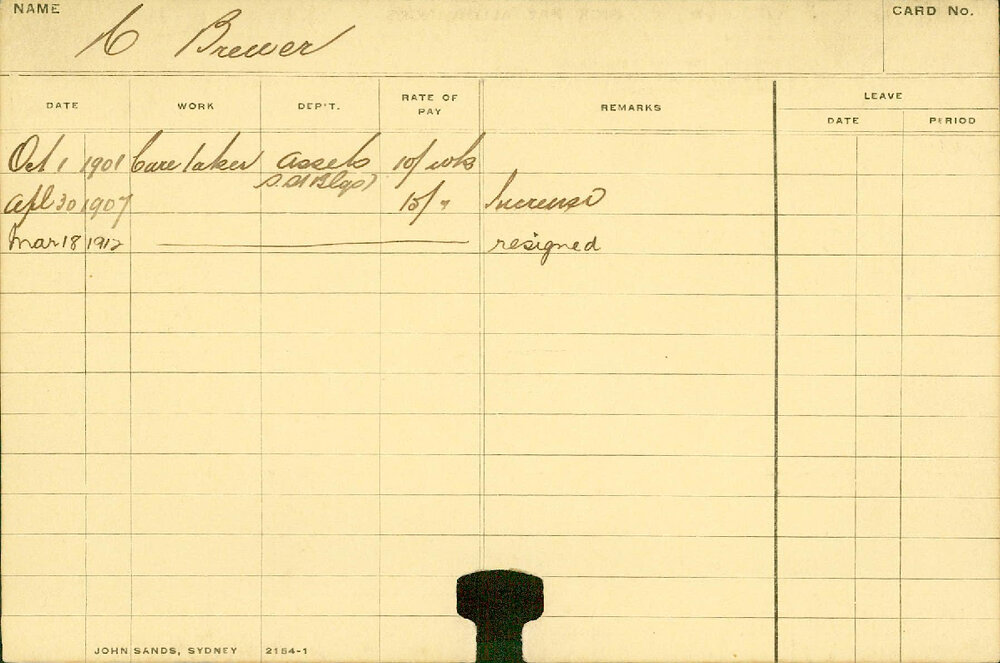 NAME
CARD No.
C Brewer
DATE WORK DEP'T. RATE OF PAY REMARKS LEAVE
DATE PERIOD
Oct 1 1901 Caretaker Assets 10/ wk
S.H. Blgs)
Apl 30 1907 15/ " Increase
Mar 18 1912 resigned
JOHN SANDS, SYDNEY 2154-1